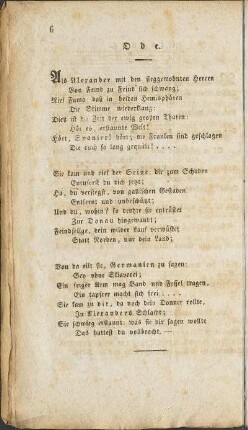 6
Ode.
Als Alexander mit den sieggewohnten Heeren
Von Feind zu Feind sich schwang;
Rief Fama, daß in beiden Hemisphären
Die Stimme wiederklang:
Dies ist die Zeit der ewig großen Thaten:
Hör es, erstaunte Welt!
Höret, Spanier! hört; die Franken sind geschlagen
Die euch so lang gequält! . . . .
Sie kam und rief der Seine, die zum Schaden
Du dich jetzt;
Ha, du versiegst, von gallischen Gestaden
Entfernt und unbeschützt;
Und du, wohin? so donnre sie entrüstet
Zur Donau hingewandt;
Feindselige, dein wilder Lauf verwüstet
Statt Norden, nur dein Land;
Von da eilt sie, Germanien zu sagen:
Sey ohne Sklaverei;
Ein single Arm mag Band und Fessel tragen,
Ein tapfrer macht sich frei . . . .
Sie kam zu dir, da noch dein Donner rollte,
In Alexanders Schlacht;
Sie schwieg erstaunt: was sie dir sagen wollte
Das hattest du vollbracht. —